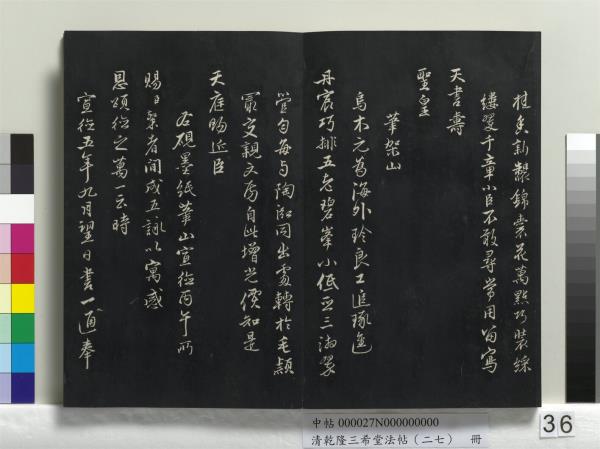 桂玉新製錦雲花萬點巧裝綵
縷雙千童小臣不敢尋常用留寫
天書壽
聖皇
筆架山
烏木元為海外珍良工追琢進
丹宸巧排五老碧峯小低亞三湘翠
管勻每與陶泓同出處轉於毛穎
最交親文房自此增光價知是
天庭賜近臣
右硯墨紙筆山宣德丙午所
賜日槃者間成五詠以寓感
恩頌德之萬一云時
宣德五年九月望日書一通奉
中帖 000027N000000000
清乾隆三希堂法帖（二七） 冊
36